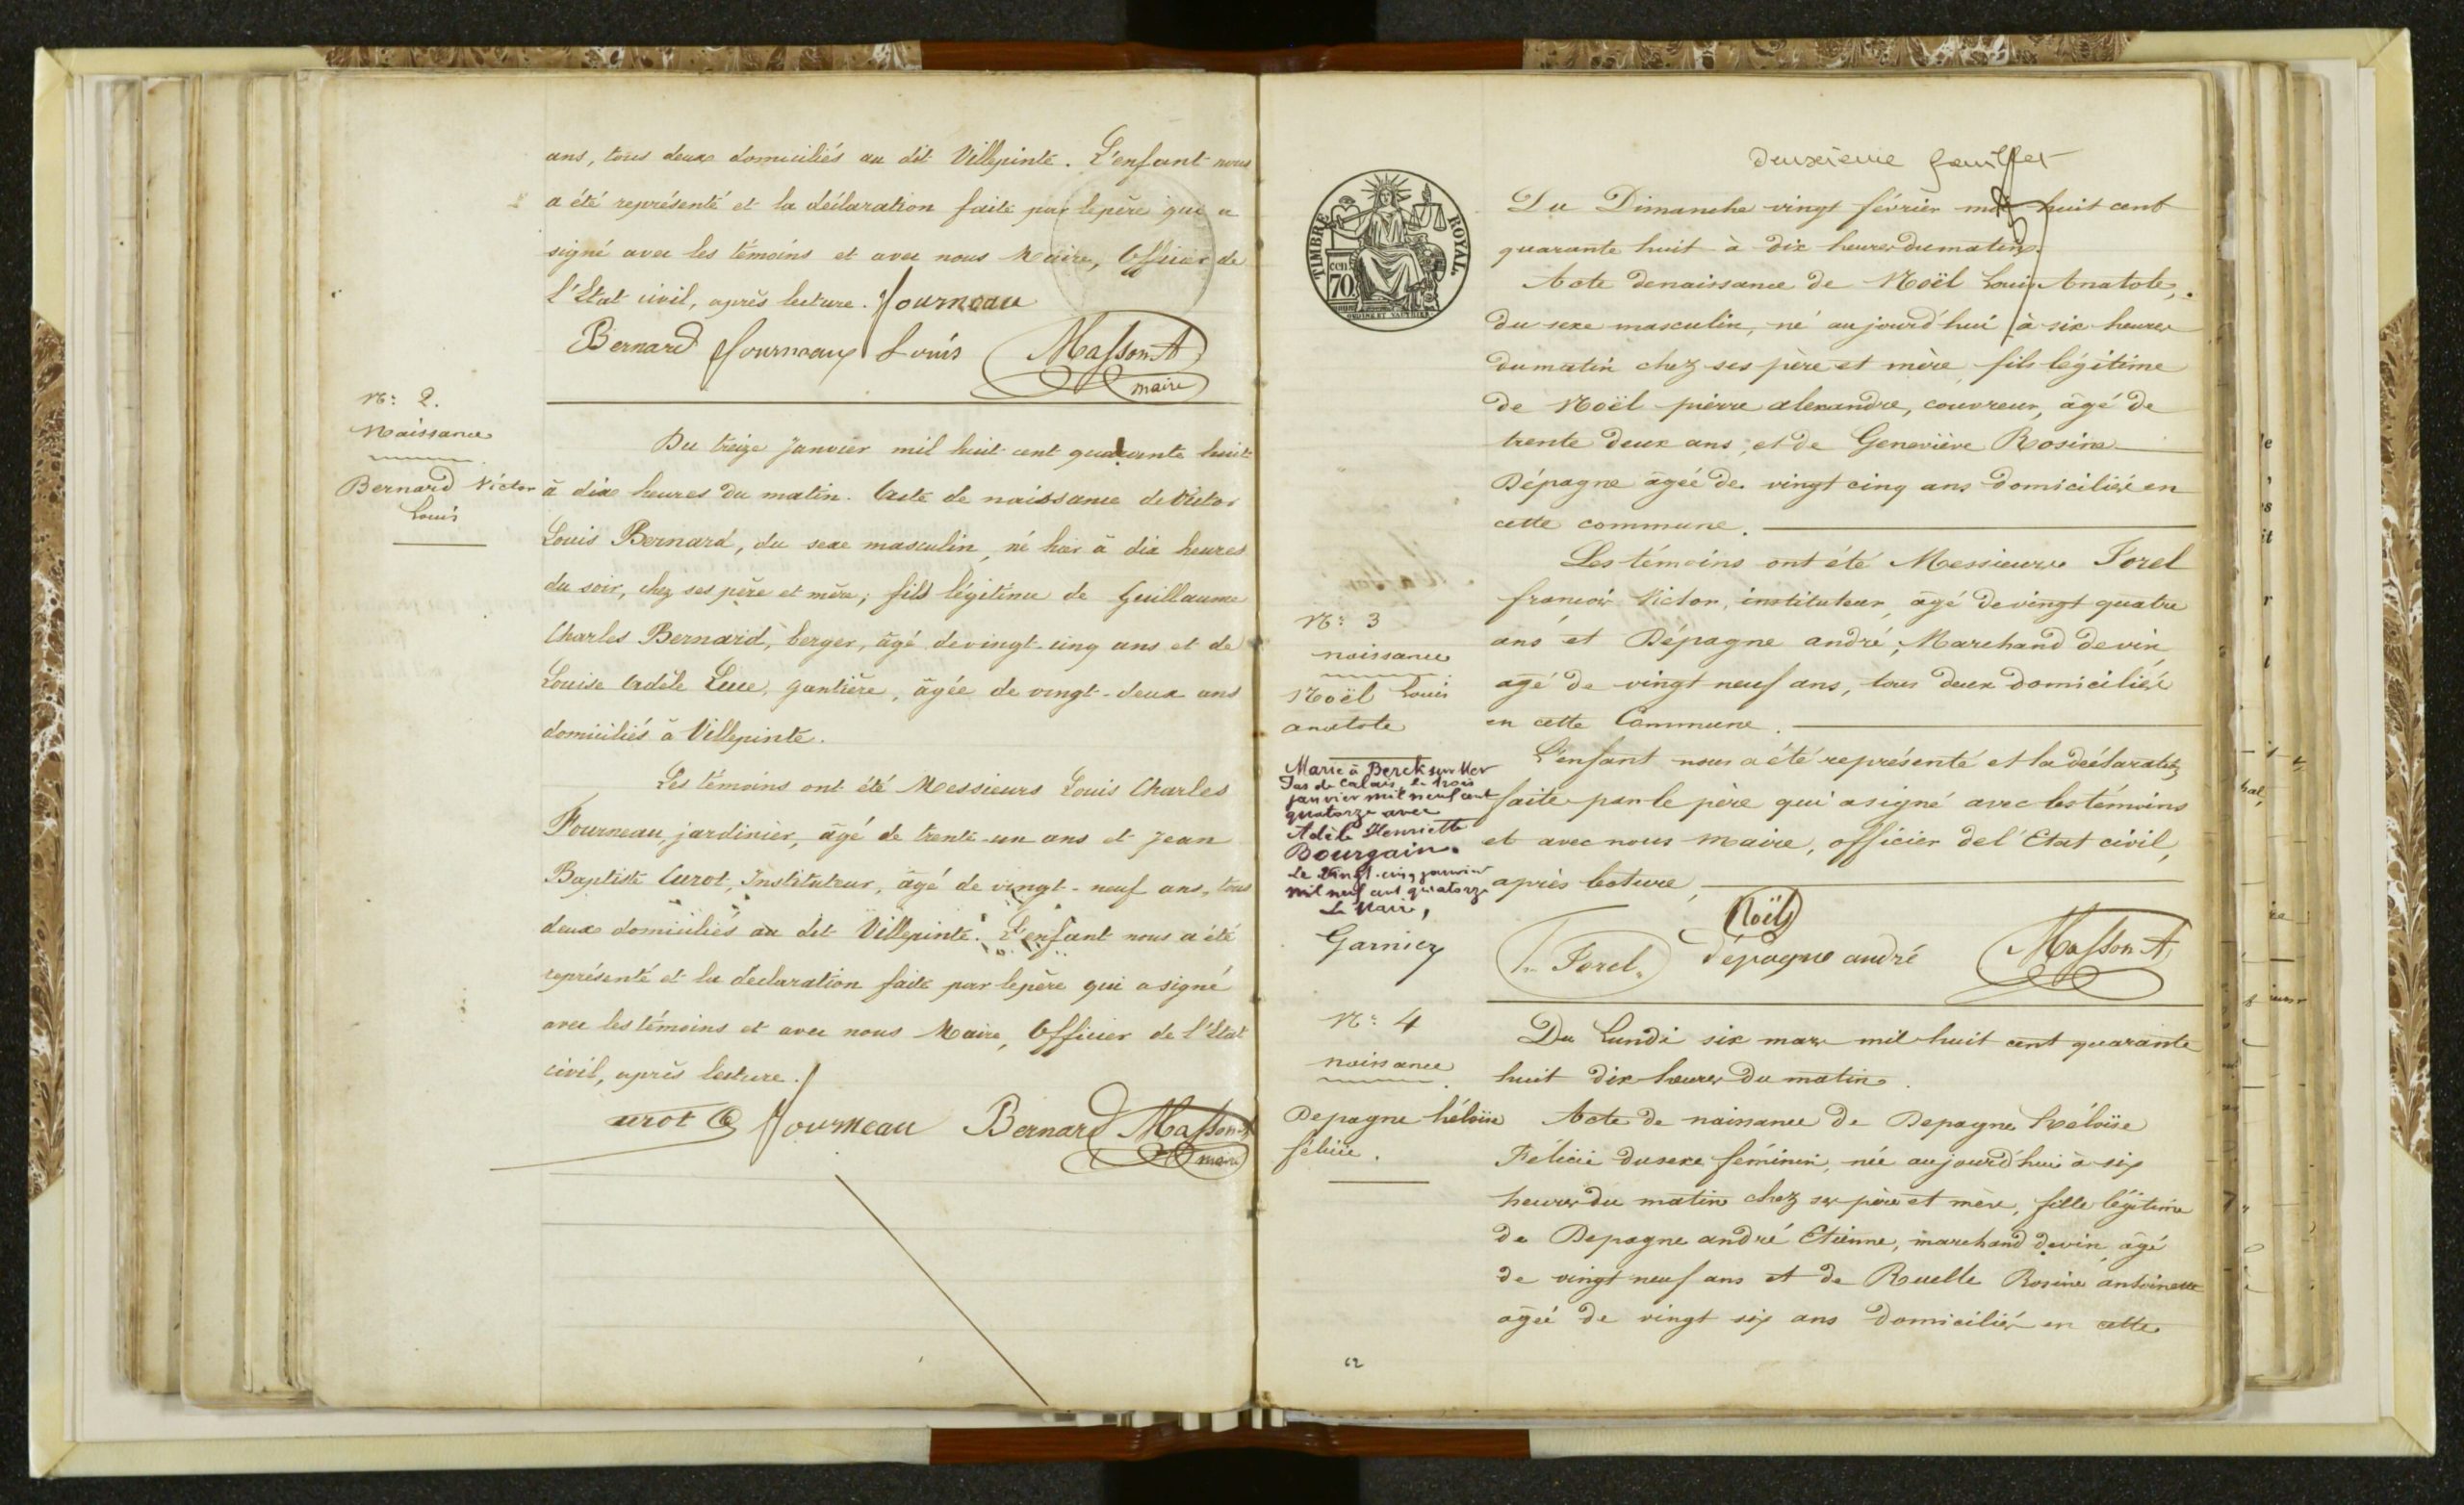 ans, tous deux domiciliés au dit Villepinte. L'enfant nous
a été représenté et la déclaration faite par le père qui a
signé avec les témoins et avec nous Maire, Officier de
l'Etat civil, après lecture. Fourneau
Bernard Fourneaux Louis Masson A
maire
N°: 2.
Naissance
Bernard Victor
Louis
Du treize Janvier mil huit cent quarante huit
à dix heures du matin. Acte de naissance de Victor
Louis Bernard, du sexe masculin, né hier à dix heures
du soir, chez ses père et mère; fils légitime de Guillaume
Charles Bernard, berger, âgé de vingt-cinq ans et de
Louise Adèle Luce, gantière, âgée de vingt-deux ans
domiciliés à Villepinte.
Les témoins ont été Messieurs Louis Charles
Fourneau, jardinier, âgé de trente-un ans et Jean
Baptiste Curot, Instituteur, âgé de vingt-neuf ans, tous
deux domiciliés au dit Villepinte. L'enfant nous a été
représenté et la déclaration faite par le père qui a signé
avec les témoins et avec nous Maire, Officier de l'Etat
civil, après lecture.
urot Fourneau Bernard Masson A
maire
deuxieme feuillet
TIMBRE ROYAL
70 cen
Du Dimanche vingt février mil huit cent
quarante huit à dix heures du matin.
Acte de naissance de Noël Louis Anatole,
du sexe masculin, né aujourd'hui à six heures
du matin chez ses père et mère, fils légitime
de Noël pierre alexandre, couvreur, âgé de
trente deux ans; et de Geneviève Rosine
Dépagne âgée de vingt cinq ans domiciliés en
cette commune.
Les témoins ont été Messieurs Forel
françois Victor, instituteur, âgé de vingt quatre
ans et Dépagne andré, Marchand de vin
âgé de vingt neuf ans, tous deux domiciliés
en cette Commune.
L'enfant nous a été représenté et la déclaration
faite par le père qui a signé avec les témoins
et avec nous Maire, officier de l'Etat civil,
après lecture,
Noël
F. Forel dépagne andré Masson A
N°: 3
naissance
Noël Louis
anatole
Marié à Berck sur Mer
Pas de Calais, le trois
janvier mil neuf cent
quatorze avec
Adèle Henriette
Bourgain.
Le vingt-cinq janvier
mil neuf cent quatorze
Le Maire,
Garnier
N°: 4
naissance
Depagne héloïse
félicie.
Du Lundi six mars mil huit cent quarante
huit dix heures du matin.
Acte de naissance de Depagne héloïse
Félicie du sexe féminin, née aujourd'hui à six
heures du matin chez ses père et mère, fille légitime
de Depagne andré Etienne, marchand de vin, âgé
de vingt neuf ans et de Ruelle Rosine antoinette
âgée de vingt six ans domiciliés en cette
62